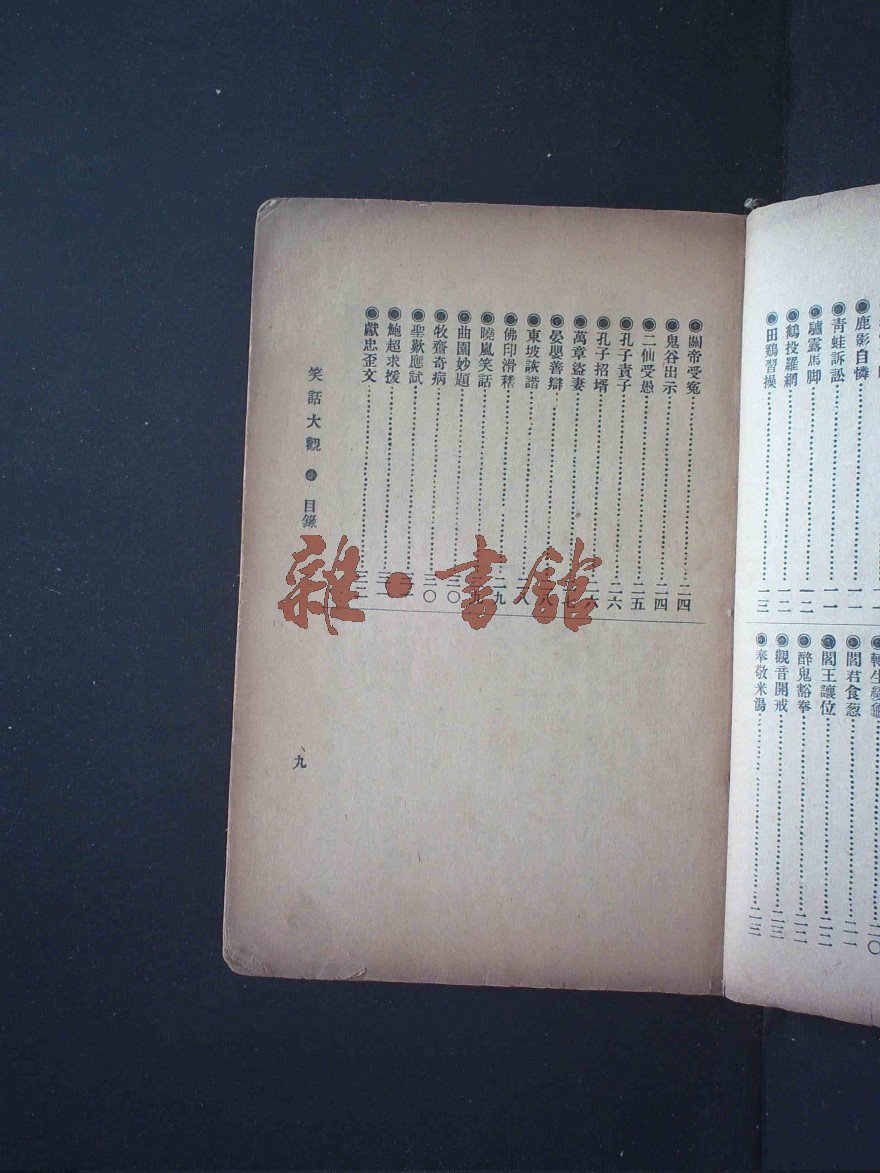 鹿影自憐……一一
青蛙訴訟……一一
驢露馬脚……一二
鶴投羅網……一二
田鷄習操……一三
轉生變龜……二〇
閻君食葱……二一
閻王讓位……二二
醉鬼豁拳……二二
觀音開戒……二三
奉敬米湯……二三
關帝受冤……二四
鬼谷出示……二四
二仙受愚……二五
孔子責子……二六
孔子招壻……二六
萬章盜妻……二七
晏嬰善辯……二八
東坡詼諧……二八
佛印滑稽……二九
曉嵐笑話……二九
曲園妙題……三〇
牧齋奇病……三〇
聖歎應試……三一
鮑超求援……三一
獻忠歪文……三二
笑話大觀 目錄
九
雜·書館